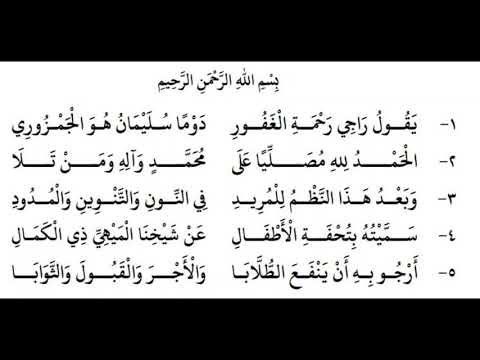 بِسْمِ اللهِ الرَّحْمَنِ الرَّحِيمِ
١- يَقُولُ رَاجِي رَحْمَةِ الْغَفُورِ دَوْمًا سُلَيْمَانُ هُوَ الْجَمْزُورِي
٢- الْحَمْدُ لِلهِ مُصَلِّيًا عَلَى مُحَمَّدٍ وَآلِهِ وَمَنْ تَلَا
٣- وَبَعْدُ هَذَا النَّظْمُ لِلْمُرِيدِ فِي النُّونِ وَالتَّنْوِينِ وَالْمُدُودِ
٤- سَمَّيْتُهُ بِتُحْفَةِ الْأَطْفَالِ عَنْ شَيْخِنَا الْمَيْهِيِّ ذِي الْكَمَالِ
٥- أَرْجُو بِهِ أَنْ يَنْفَعَ الطُّلَّابَا وَالْأَجْرَ وَالْقَبُولَ وَالثَّوَابَا